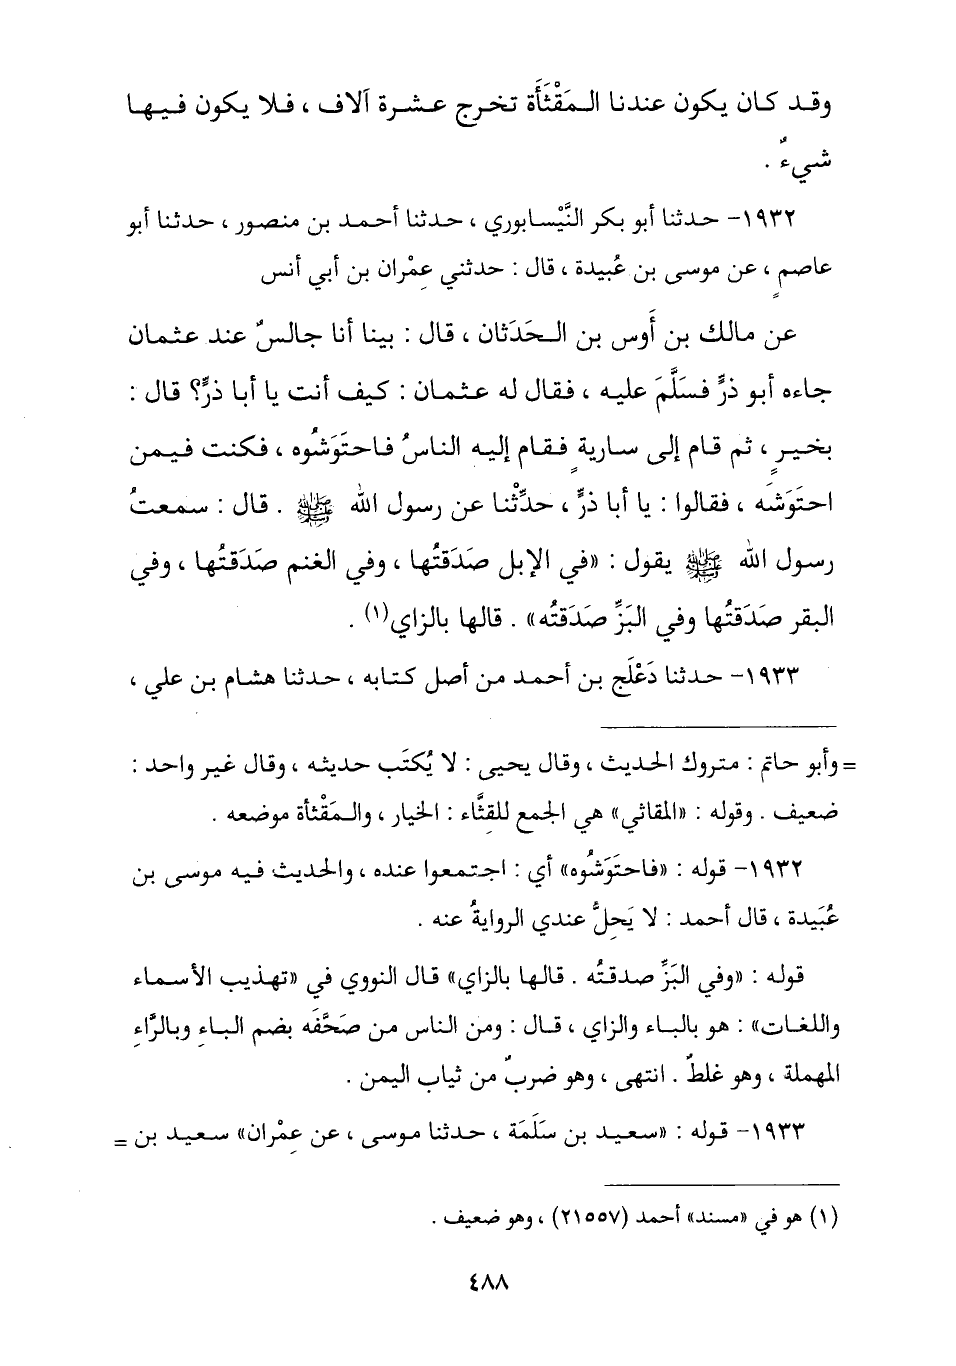 وقد كان يكون عندنا المَقْثَأَة تخرج عشرة آلاف ، فلا يكون فيها
شيءٌ .
١٩٣٢- حدثنا أبو بكر النَّيْسابوري ، حدثنا أحمد بن منصور ، حدثنا أبو
عاصمٍ ، عن موسى بن عُبيدة ، قال : حدثني عِمْران بن أبي أنس
عن مالك بن أَوس بن الحَدَثان ، قال : بينا أنا جالسٌ عند عثمان
جاءه أبو ذرٍّ فسَلَّمَ عليه ، فقال له عثمان : كيف أنت يا أبا ذرٍّ؟ قال :
بخيرٍ ، ثم قام إلى ساريةٍ فقام إليه الناسُ فاحتَوَشُوه ، فكنت فيمن
احتَوَشَه ، فقالوا : يا أبا ذرٍّ ، حدِّثْنا عن رسول الله ﷺ . قال : سمعتُ
رسول الله ﷺ يقول : «في الإبل صَدَقتُها ، وفي الغنم صَدَقتُها ، وفي
البقر صَدَقتُها وفي البَزِّ صَدَقتُه» . قالها بالزاي(١) .
١٩٣٣- حدثنا دَعْلَج بن أحمد من أصل كتابه ، حدثنا هشام بن علي ،
= وأبو حاتم : متروك الحديث ، وقال يحيى : لا يُكتَب حديثه ، وقال غير واحد :
ضعيف . وقوله : «المقاثي» هي الجمع للقِثَّاء : الخيار ، والمَقْثأة موضعه .
١٩٣٢- قوله : «فاحتَوَشُوه» أي : اجتمعوا عنده ، والحديث فيه موسى بن
عُبَيدة ، قال أحمد : لا يَحِلُّ عندي الروايةُ عنه .
قوله : «وفي البَزِّ صدقتُه . قالها بالزاي» قال النووي في «تهذيب الأسماء
واللغات» : هو بالباء والزاي ، قال : ومن الناس من صَحَّفَه بضم الباءِ وبالرَّاءِ
المهملة ، وهو غلطٌ . انتهى ، وهو ضربٌ من ثياب اليمن .
١٩٣٣- قوله : «سعيد بن سَلَمَة ، حدثنا موسى ، عن عِمْران» سعيد بن =
(١) هو في «مسند» أحمد (٢١٥٥٧) ، وهو ضعيف .
٤٨٨